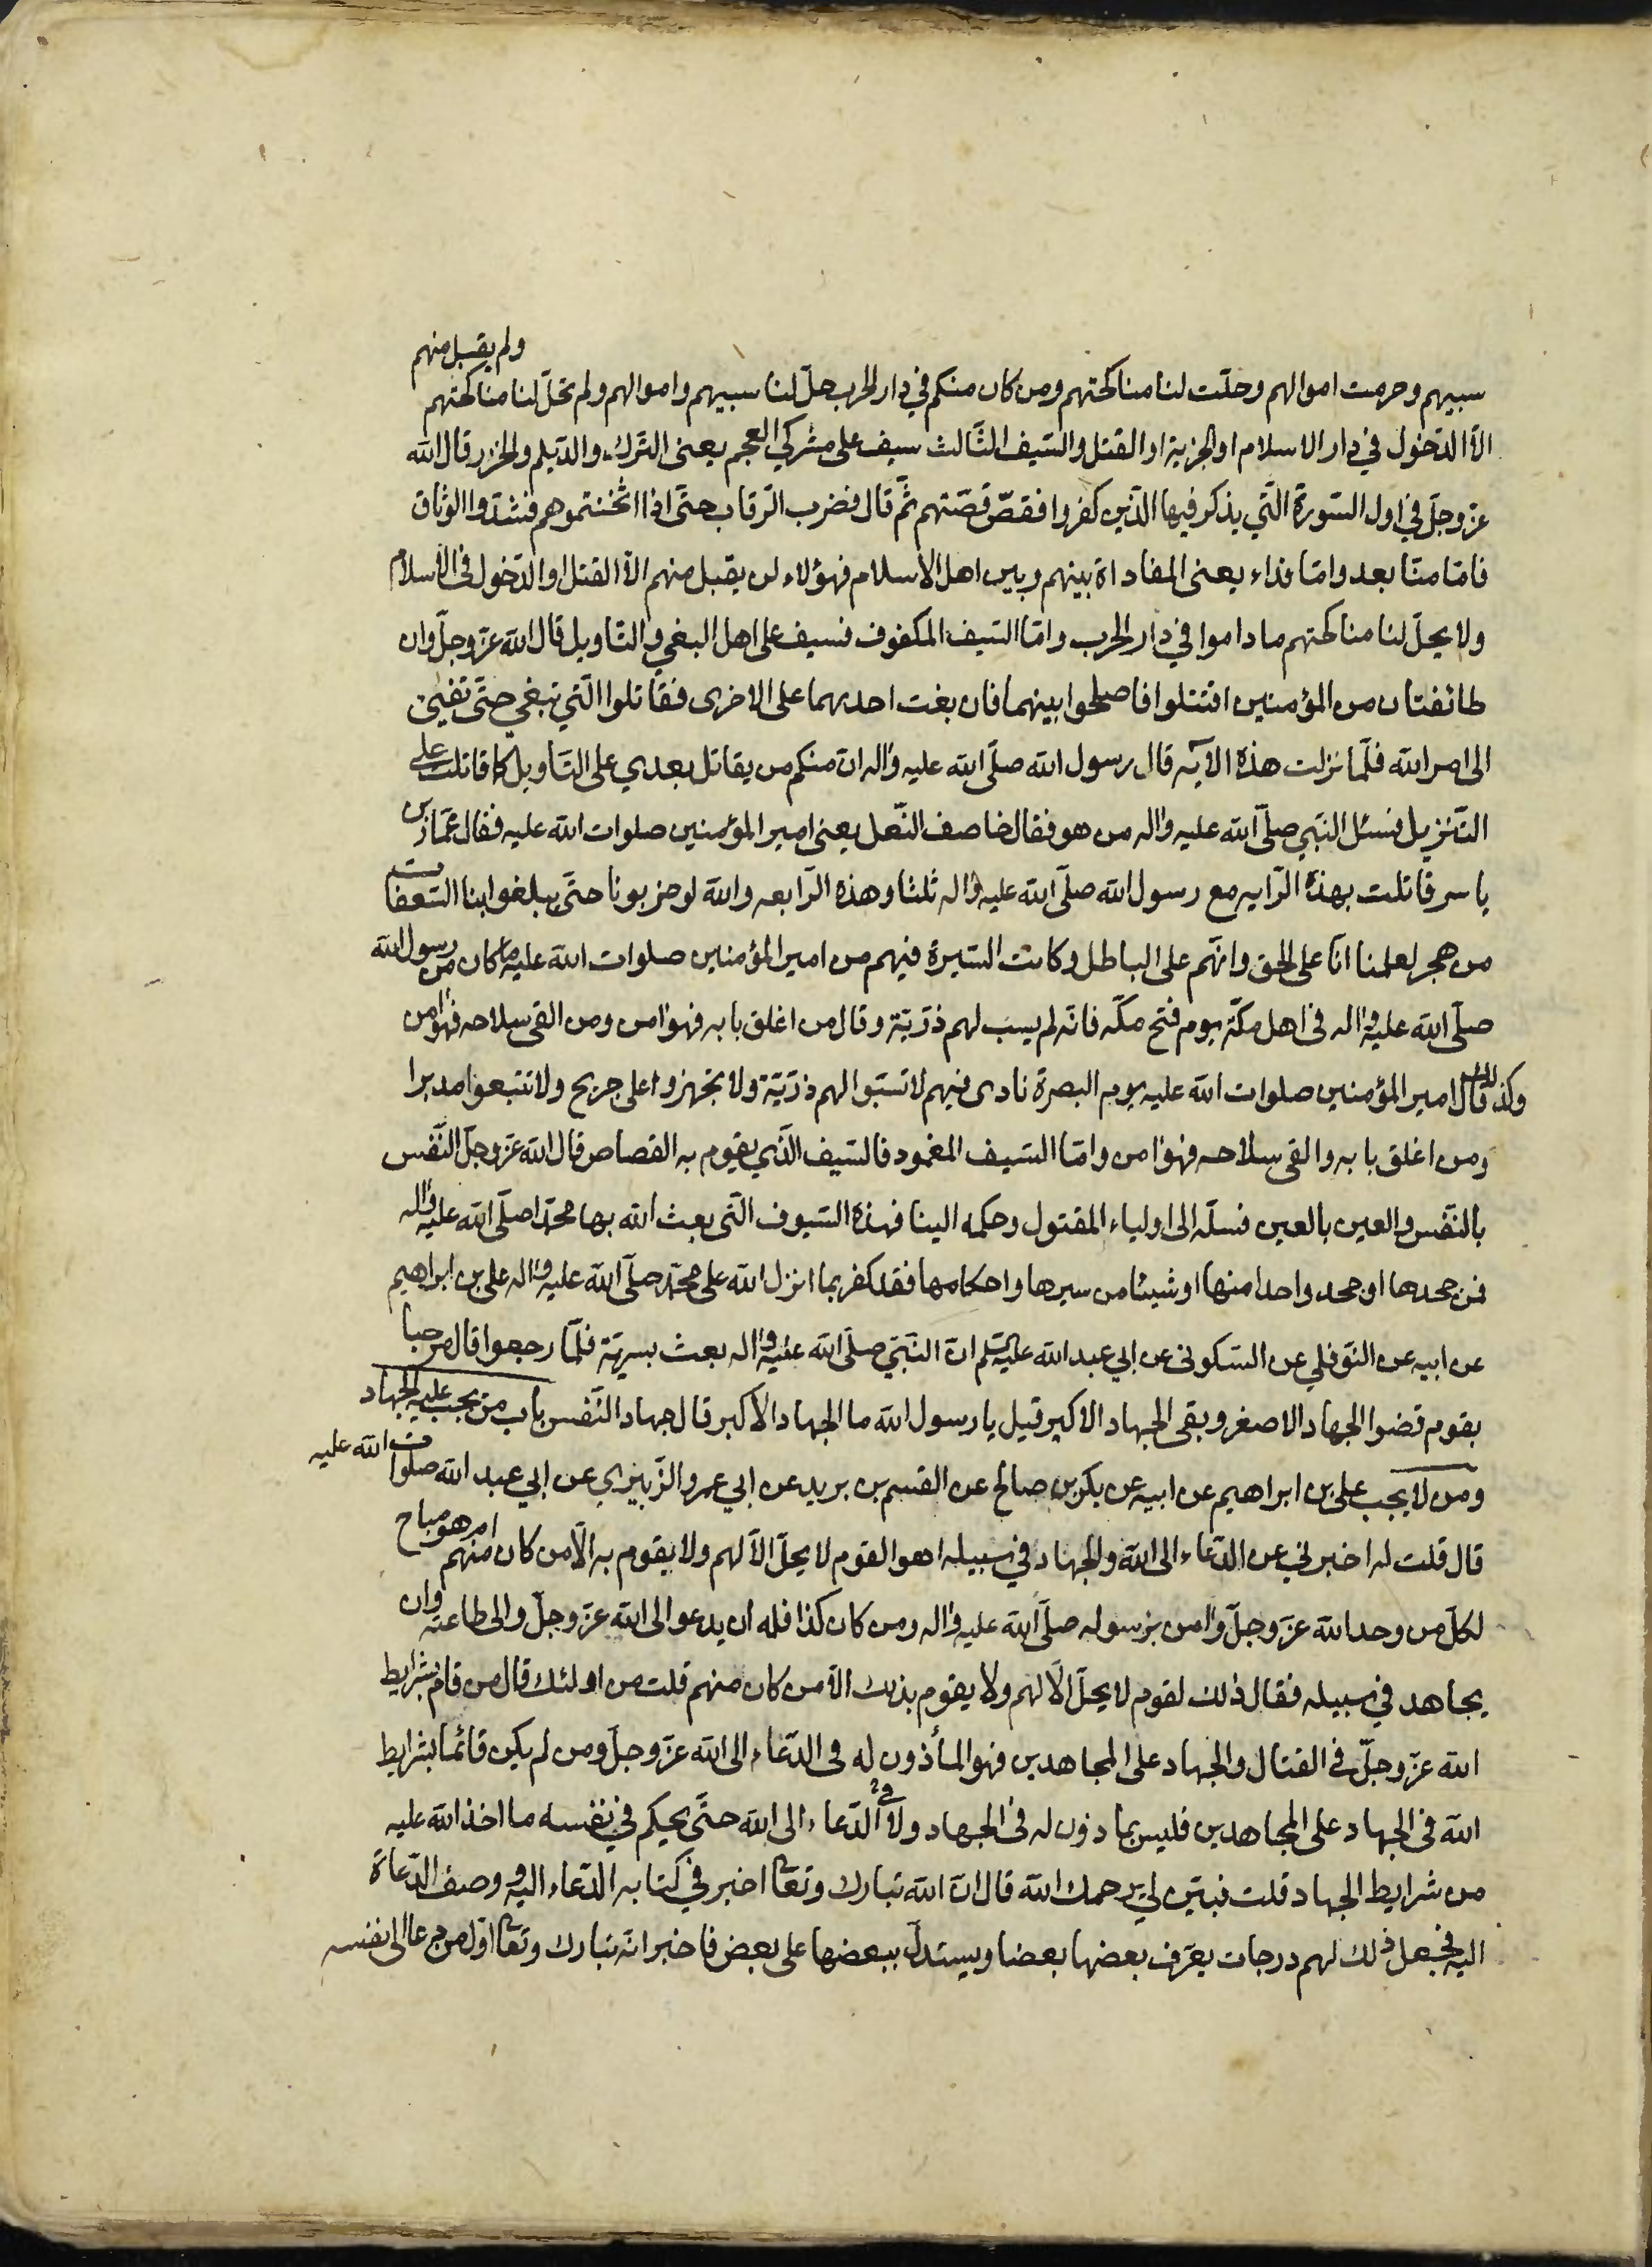 سبيهم وحرمت اموالهم وحلّت لنا مناكحتهم ومن كان منكم في دار الحرب حلّ لنا سبيهم واموالهم ولم تحلّ لنا مناكحتهم ولم يقبل منهم
الّا الدّخول في دار الاسلام او الجزية او القتل والسّيف الثّالث سيف على مشركي العجم يعنى التّرك والدّيلم والخزر قال الله
عزّوجلّ في اول السّورة الّتي يذكر فيها الّذين كفروا فقصّ قصّتهم ثمّ قال فضرب الرّقاب حتّى اذا اثخنتموهم فشدّوا الوثاق
فامّا منّا بعد وامّا فداء يعنى المفاداة بينهم وبين اهل الاسلام فهؤلاء لن يقبل منهم الّا القتل او الدّخول فى الاسلام
ولا يحلّ لنا مناكحتهم ما داموا في دار الحرب وامّا السّيف المكفوف فسيف على اهل البغي والتّاويل قال الله عزّوجلّ وان
طائفتان من المؤمنين اقتتلوا فاصلحوا بينهما فان بغت احديهما على الاخرى فقاتلوا الّتي تبغي حتّى تفيئ
الى امر الله فلمّا نزلت هذه الآيه قال رسول الله صلّى الله عليه واله انّ منكم من يقاتل بعدي على التّاويل كما قاتلت على
التّنزيل فسئل النّبي صلّى الله عليه واله من هو فقال خاصف النّعل يعنى امير المؤمنين صلوات الله عليه فقال عمّار بن
ياسر قاتلت بهذه الرّايه مع رسول الله صلّى الله عليه واله ثلثا وهذه الرّابعه والله لو ضربونا حتّى يبلغوا بنا السّعفات
من هجر لعلمنا انّا على الحق وانّهم على الباطل وكانت السّيرة فيهم من امير المؤمنين صلوات الله عليه ما كان من رسول الله
صلّى الله عليه واله في اهل مكّة يوم فتح مكّه فانّه لم يسب لهم ذرّيّة وقال من اغلق بابه فهو امن ومن القى سلاحه فهو امن
وكذلك قال امير المؤمنين صلوات الله عليه يوم البصرة نادى فيهم لا تسبّوا لهم ذرّيّة ولا تجهزوا على جريح ولا تتبعوا مدبرا
ومن اغلق بابه والقى سلاحه فهو امن وامّا السّيف المغمود فالسّيف الّذي يقوم به القصاص قال الله عزّوجلّ النّفس
بالنّفس والعين بالعين فسلّه الى اولياء المقتول وحكمه الينا فهذه السّيوف الّتى بعث الله بها محمّدا صلّى الله عليه واله
فمن جحدها او جحد واحدا منها او شيئا من سيرها واحكامها فقد كفر بما انزل الله على محمّد صلّى الله عليه واله على بن ابراهيم
عن ابيه عن النّوفلي عن السّكونى عن ابي عبد الله عليه السّلم انّ النّبيّ صلّى الله عليه واله بعث بسريّة فلمّا رجعوا قال مرحبا
بقوم قضوا الجهاد الاصغر وبقى الجهاد الاكبر قيل يا رسول الله ما الجهاد الاكبر قال جهاد النّفس باب من يجب عليه الجهاد
ومن لا يجب على بن ابراهيم عن ابيه عن بكر بن صالح عن القسم بن بريد عن ابي عمرو الزّبيري عن ابي عبد الله صلوات الله عليه
قال قلت له اخبرني عن الدّعاء الى الله والجهاد في سبيله اهو القوم لا يحلّ الّا لهم ولا يقوم به الّا من كان منهم ام هو مباح
لكلّ من وحد الله عزّوجلّ وامن برسوله صلّى الله عليه واله ومن كان كذا فله ان يدعو الى الله عزّوجلّ والى طاعته وان
يجاهد في سبيله فقال ذلك لقوم لا يحلّ الّا لهم ولا يقوم بذلك الّا من كان منهم قلت من اولئك قال من قام بشرايط
الله عزّوجلّ في القتال والجهاد على المجاهدين فهو المأذون له في الدّعاء الى الله عزّوجلّ ومن لم يكن قائما بشرايط
الله في الجهاد على المجاهدين فليس بماذون له في الجهاد ولا في الدّعاء الى الله حتّى يحكم في نفسه ما اخذ الله عليه
من شرايط الجهاد قلت فبيّن لي يرحمك الله قال انّ الله تبارك وتعا اخبر في كتابه الدّعاء اليه ووصف الدّعاة
اليه فجعل ذلك لهم درجات يعرّف بعضها بعضا ويستدلّ ببعضها على بعض فاخبر انّه تبارك وتعا اوّل من دعا الى نفسه